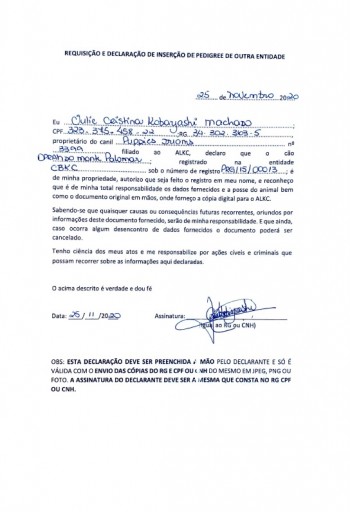 REQUISIÇÃO E DECLARAÇÃO DE INSERÇÃO DE PEDIGREE DE OUTRA ENTIDADE
25 de novembro 2020
Eu Julie Cristina Kobayashi Machado
CPF 323.375.458-22 RG 34.302.
proprietário do canil Puppies nº
3399 filiado ao ALKC, declaro que o cão
monte Palomar registrado na entidade
CBKC sob o número de registro /15/00013; é
de minha propriedade, autorizo que seja feito o registro em meu nome, e reconheço
que é de minha total responsabilidade os dados fornecidos e a posse do animal bem
como o documento original em mãos, onde forneço a cópia digital para o ALKC.
Sabendo-se que quaisquer causas ou consequências futuras recorrentes, oriundos por
informações deste documento fornecido, serão de minha responsabilidade. E que ainda,
caso ocorra algum desencontro de dados fornecidos o documento poderá ser
cancelado.
Tenho ciência dos meus atos e me responsabilizo por ações cíveis e criminais que
possam recorrer sobre as informações aqui declaradas.
O acima descrito é verdade e dou fé
Data: 25/11/2020 Assinatura:
(igual ao RG ou CNH)
OBS: ESTA DECLARAÇÃO DEVE SER PREENCHIDA MÃO PELO DECLARANTE E SÓ É
VÁLIDA COM O ENVIO DAS CÓPIAS DO RG E CPF OU CNH DO MESMO EM JPEG, PNG OU
FOTO. A ASSINATURA DO DECLARANTE DEVE SER A MESMA QUE CONSTA NO RG CPF
OU CNH.